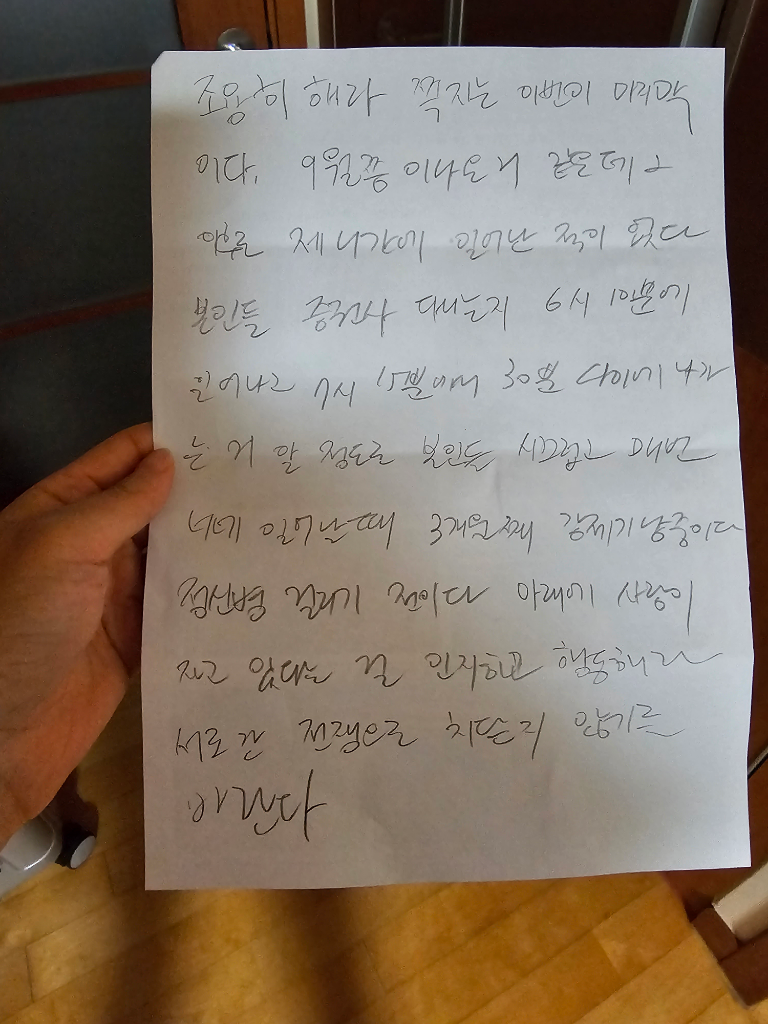 조용히 해라 쪽지는 이번이 마지막
이다. 9월쯤 이사온 거 같은데 그
이후로 제시간에 일어난 적이 없다
본인들 증권사 다니는지 6시 10분에
일어나고 7시 15분에서 30분 사이에 나가
는 거 알 정도로 본인들 시끄럽고 매번
너네 일어날때 3개월째 강제기상중이다
정신병 걸리기 전이다 아래에 사람이
자고 있다는 걸 인지하고 행동해라
서로 간 전쟁으로 치닫지 않기를
바란다